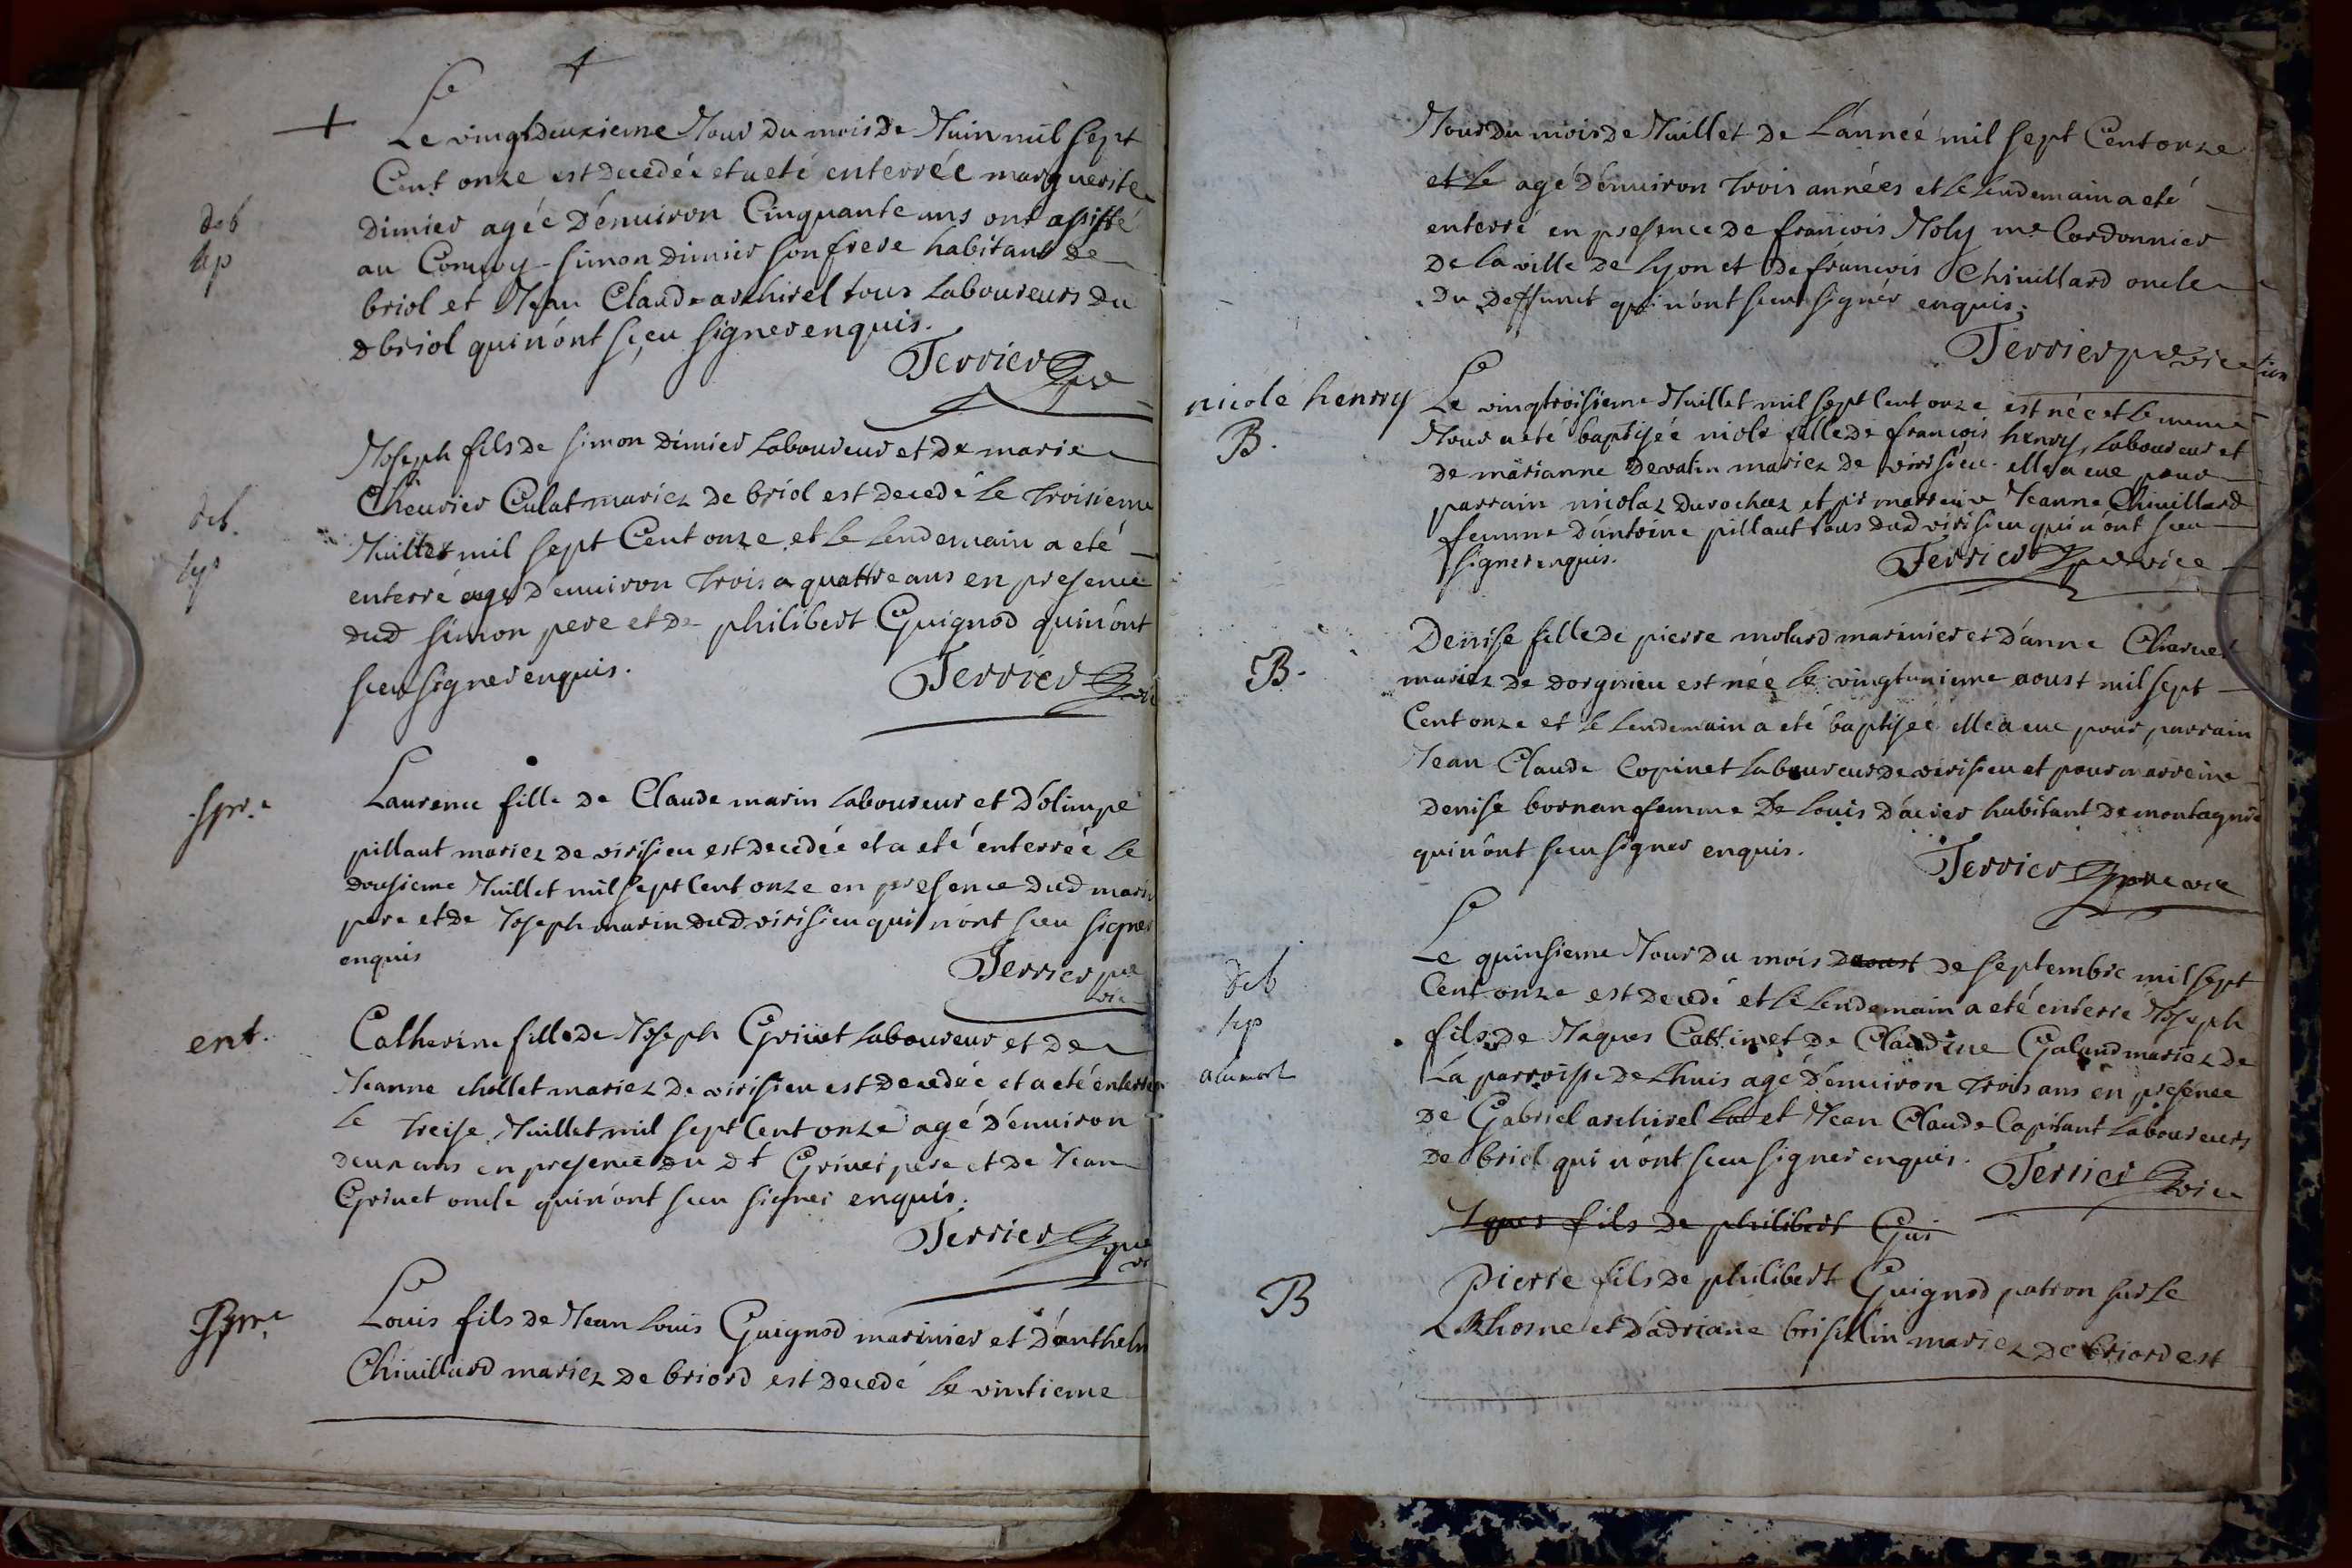 Le vingtdeuxieme Jour du mois de Juin mil sept
Cent onze est decedée et a eté enterrée marguerite
deb
dimier agée d'enuiron Cinquante ans ont assisté
au Conuoy simon dimier son frere habitant de
briol et Jean Claude archirel tous Laboureurs du
d briol qui n'ont sçeu signer enquis.
Terrier
Joseph fils de simon dimier Laboureur et de marie
Cheurier Culat mariez de briol est decedé le troisieme
deb.
Juillet mil sept Cent onze et le lendemain a eté
enterré agé d'enuiron trois a quattre ans en presence
dud simon pere et de philibert Guignod qui n'ont
sceu signer enquis.
Terrier
Laurence fille de Claude marin Laboureur et d'olimpe
pillaut mariez de virisieu est decedée et a eté enterrée le
dousieme Juillet mil sept Cent onze en presence dud marin
pere et de Joseph marin dud virisieu qui n'ont sceu signer
enquis
Terrier pre
vic
ent.
Catherine fille de Joseph Griuet Laboureur et de
Jeanne chollet mariez de virisieu est decedée et a eté enterrée
le treise Juillet mil sept Cent onze agé d'enuiron
deux ans en presence du dt Griuet pere et de Jean
Griuet oncle qui n'ont sceu signer enquis.
Terrier pre
Louis fils de Jean Louis Guignod marinier et d'anthelm
Chiuillard mariez de briord est decedé le vintieme
Jour du mois de Juillet de L'année mil sept Cent onze
et le agé d'enuiron trois années et le lendemain a eté
enterré en presence de francois Joly me Cordonnier
de la ville de lyon et de francois Chiuillard oncle
du deffunct qui n'ont sceu signer enquis.
Terrier pre vic
nicole henry
B.
Le vingtroisieme Juillet mil sept Cent onze est née et le meme
Jour a eté baptisée nicole fille de francois henry, Laboureur et
de marianne devalin mariez de virisieu elle a eue pour
parrain nicolas durochaz et pr marreine Jeanne Chiuillard
femme d'antoine pillaut tous dud virisieu qui n'ont sceu
signer enquis.
Terrier pre vic
B.
Denise fille de pierre molard marinier et d'anne Charuet
mariez de dorgirieu est née le vingtunieme aoust mil sept
Cent onze et le lendemain a eté baptisée elle a eue pour parrain
Jean Claude Copinet Laboureur de virisieu et pour marreine
denise bornan femme de Louis d'acier habitant de montagnieu
qui n'ont sceu signer enquis.
Terrier pre vic
deb
Le quinsieme Jour du mois daoust de septembre mil sept
Cent onze est decedé et le lendemain a eté enterré Joseph
fils de Jaques Cattin et de Claudine Galand mariez de
La parroisse de Lhuis agé d'enuiron trois ans en presence
de Gabriel archirel La et Jean Claude Capitant Laboureurs
de briol qui n'ont sceu signer enquis.
Terrier vic
fils de philibert Gui
B
Pierre fils de philibert Guignod patron sur le
Rhosne et d'adriane brisillin mariez de briord est